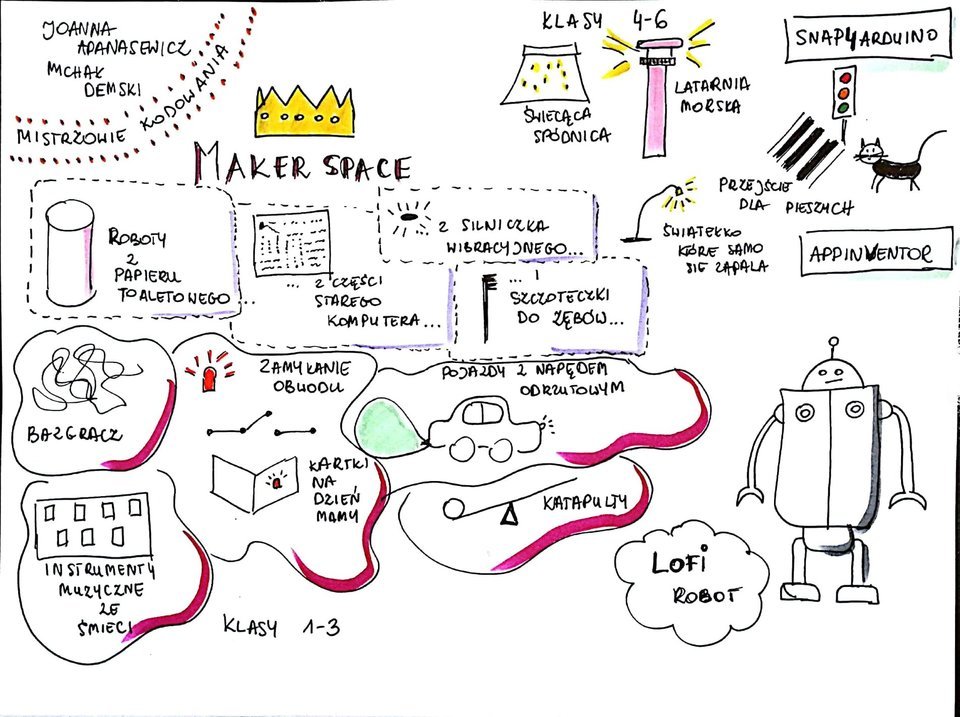 JOANNA
APANASEWICZ
MCHAŁ
DEMSKI
MISTRZOWIE KODOWANIA
MAKER SPACE
KLASY 4-6
ŚWIECĄCA
SPÓDNICA
LATARNIA
MORSKA
SNAP4ARDUINO
PRZEJŚCIE
DLA PIESZYCH
ŚWIATEŁKO
KTÓRE SAMO
SIĘ ZAPALA
APPINVENTOR
ROBOTY
Z
PAPIERU
TOALETOWEGO...
... Z CZĘŚCI
STAREGO
KOMPUTERA...
... Z SILNICZKA
WIBRACYJNEGO...
...
SZCZOTECZKI
DO ZĘBÓW...
BAZGRACZ
ZAMYKANIE
OBWODU
KARTKI
NA
DZIEŃ
MAMY
POJAZDY Z NAPĘDEM
ODRZUTOWYM
KATAPULTY
INSTRUMENTY
MUZYCZNE
ZE
ŚMIECI
KLASY 1-3
LOFI
ROBOT